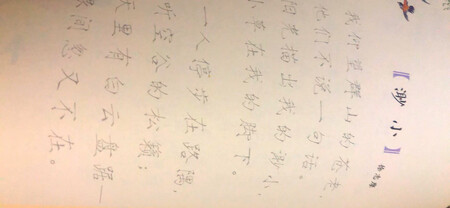 【渺小】
徐志摩
我仰望群山的苍老,
他们不说一句话。
阳光描出我的渺小,
小草在我的脚下。
一人停步在路隅,
听空谷的松籁;
天里有白云盘踞—
眼间忽又不在。